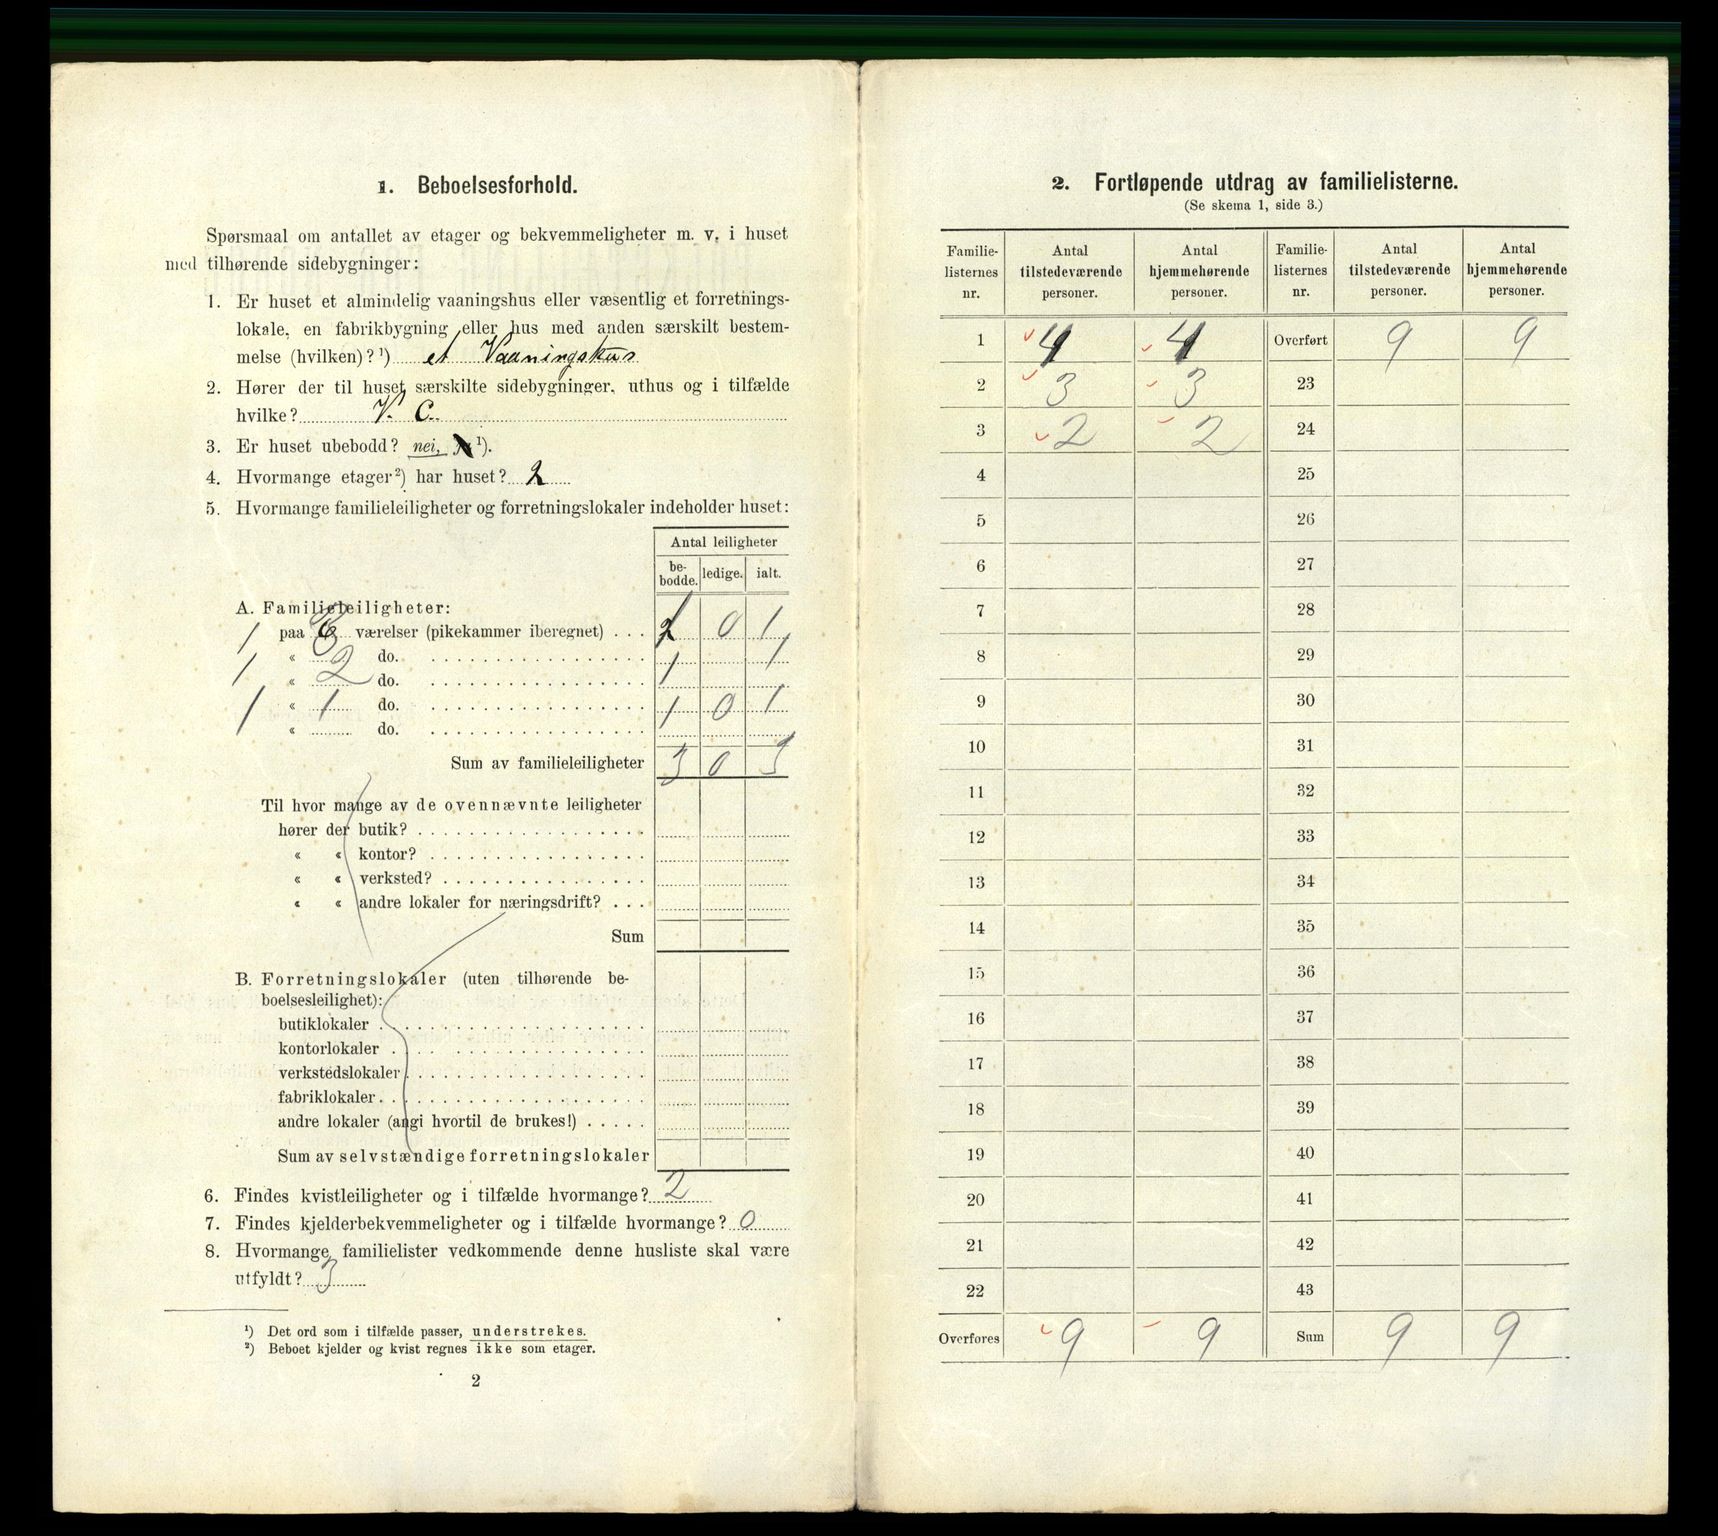 1. Beboelsesforhold.
Spørsmaal om antallet av etager og bekvemmeligheter m. v. i huset
med tilhørende sidebygninger:
1. Er huset et almindelig vaaningshus eller væsentlig et forretnings-
lokale, en fabrikbygning eller hus med anden særskilt bestem-
melse (hvilken)? ¹) et Vaaningshus
2. Hører der til huset særskilte sidebygninger, uthus og i tilfælde
hvilke? V. C.
3. Er huset ubebodd? nei, ¹).
4. Hvormange etager ²) har huset? 2
5. Hvormange familieleiligheter og forretningslokaler indeholder huset:
Antal leiligheter
be-bodde. ledige. ialt.
A. Familieleiligheter:
1 paa værelser (pikekammer iberegnet) . . . 0 1
« do. 1 1
1 « 2 do.
« 1 do. 1 0 1
1 « do.
Sum av familieleiligheter 3 0 3
Til hvor mange av de ovennævnte leiligheter
hører der butik?
« « kontor?
« « verksted?
« « andre lokaler for næringsdrift?
Sum
B. Forretningslokaler (uten tilhørende be-
boelsesleilighet):
butiklokaler
kontorlokaler
verkstedslokaler
fabriklokaler
andre lokaler (angi hvortil de brukes!)
Sum av selvstændige forretningslokaler
6. Findes kvistleiligheter og i tilfælde hvormange? 2
7. Findes kjelderbekvemmeligheter og i tilfælde hvormange? 0
8. Hvormange familielister vedkommende denne husliste skal være
utfyldt? 3
¹) Det ord som i tilfælde passer, understrekes.
²) Beboet kjelder og kvist regnes ikke som etager.
2
2. Fortløpende utdrag av familielisterne.
(Se skema 1, side 3.)
Familie-listernes nr. Antal tilstedeværende personer. Antal hjemmehørende personer. Familie-listernes nr. Antal tilstedeværende personer. Antal hjemmehørende personer.
1 4 4 Overført 9 9
2 3 3 23
3 2 2 24
4 25
5 26
6 27
7 28
8 29
9 30
10 31
11 32
12 33
13 34
14 35
15 36
16 37
17 38
18 39
19 40
20 41
21 42
22 43
Overføres 9 9 Sum 9 9